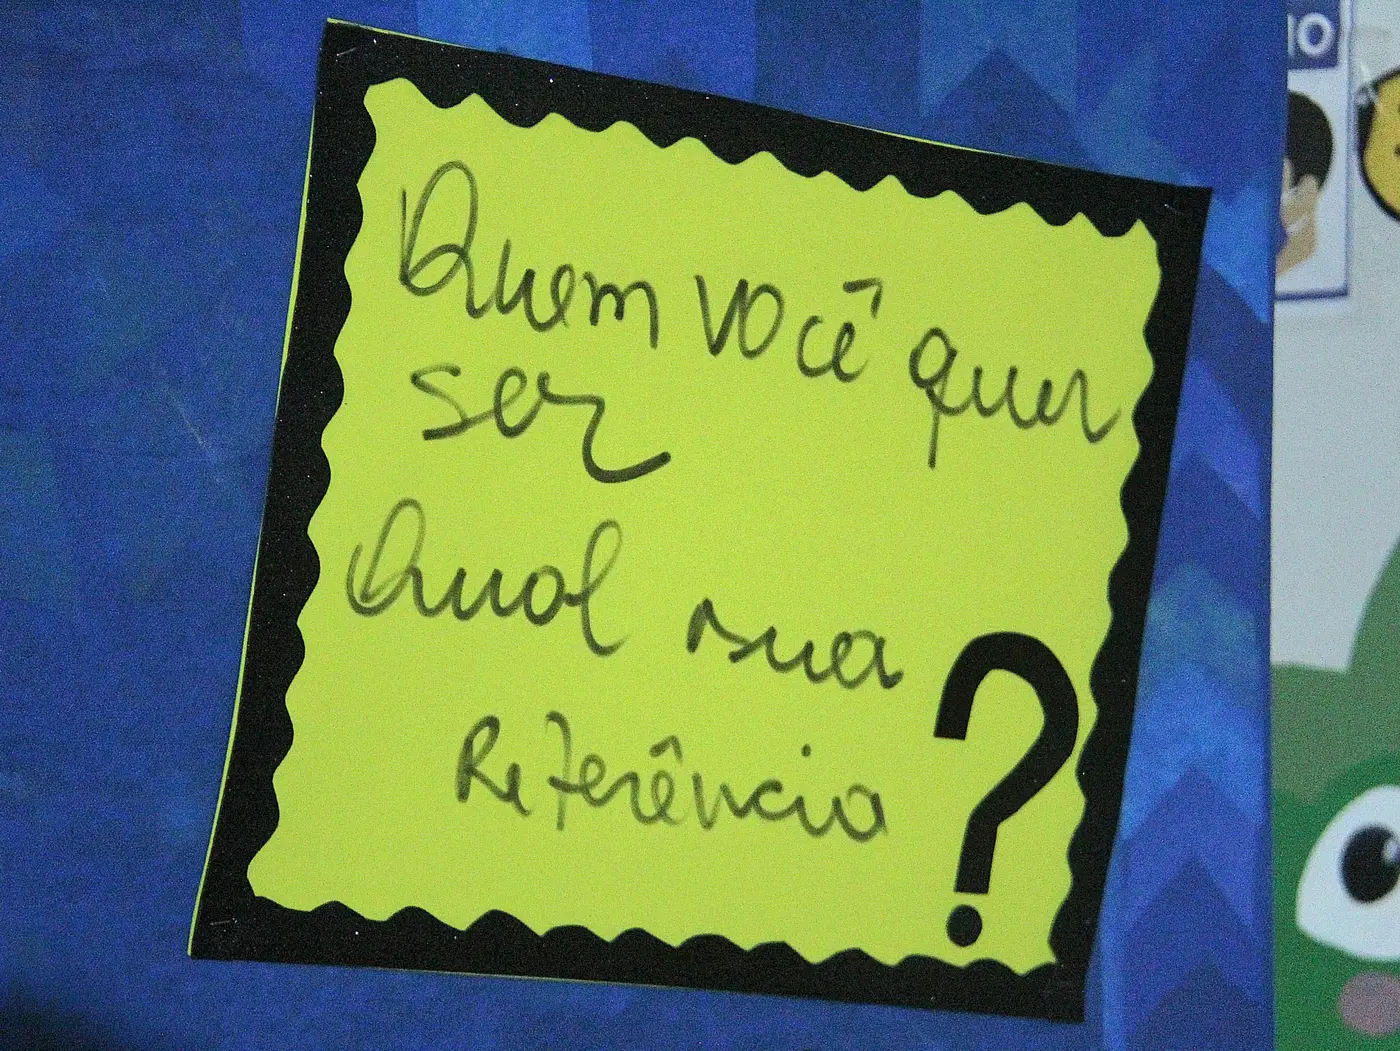 Quem você quer
ser
Qual sua
Referência
?
IO